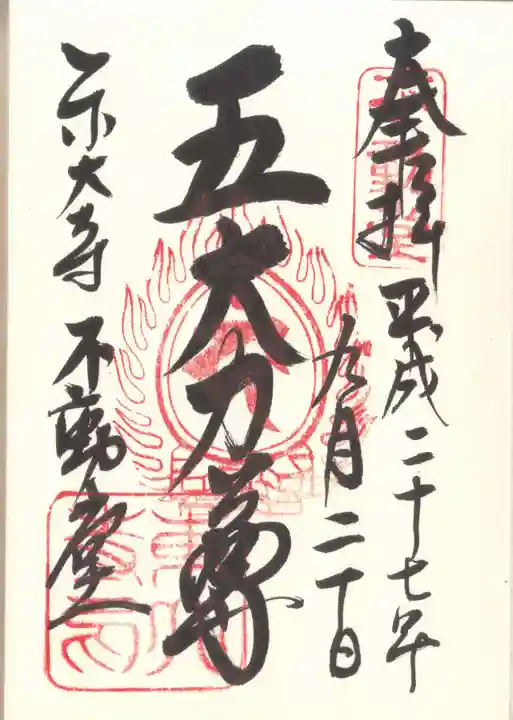 奉拝
平成二十七年
九月二十日
五大力尊
東大寺 不動堂